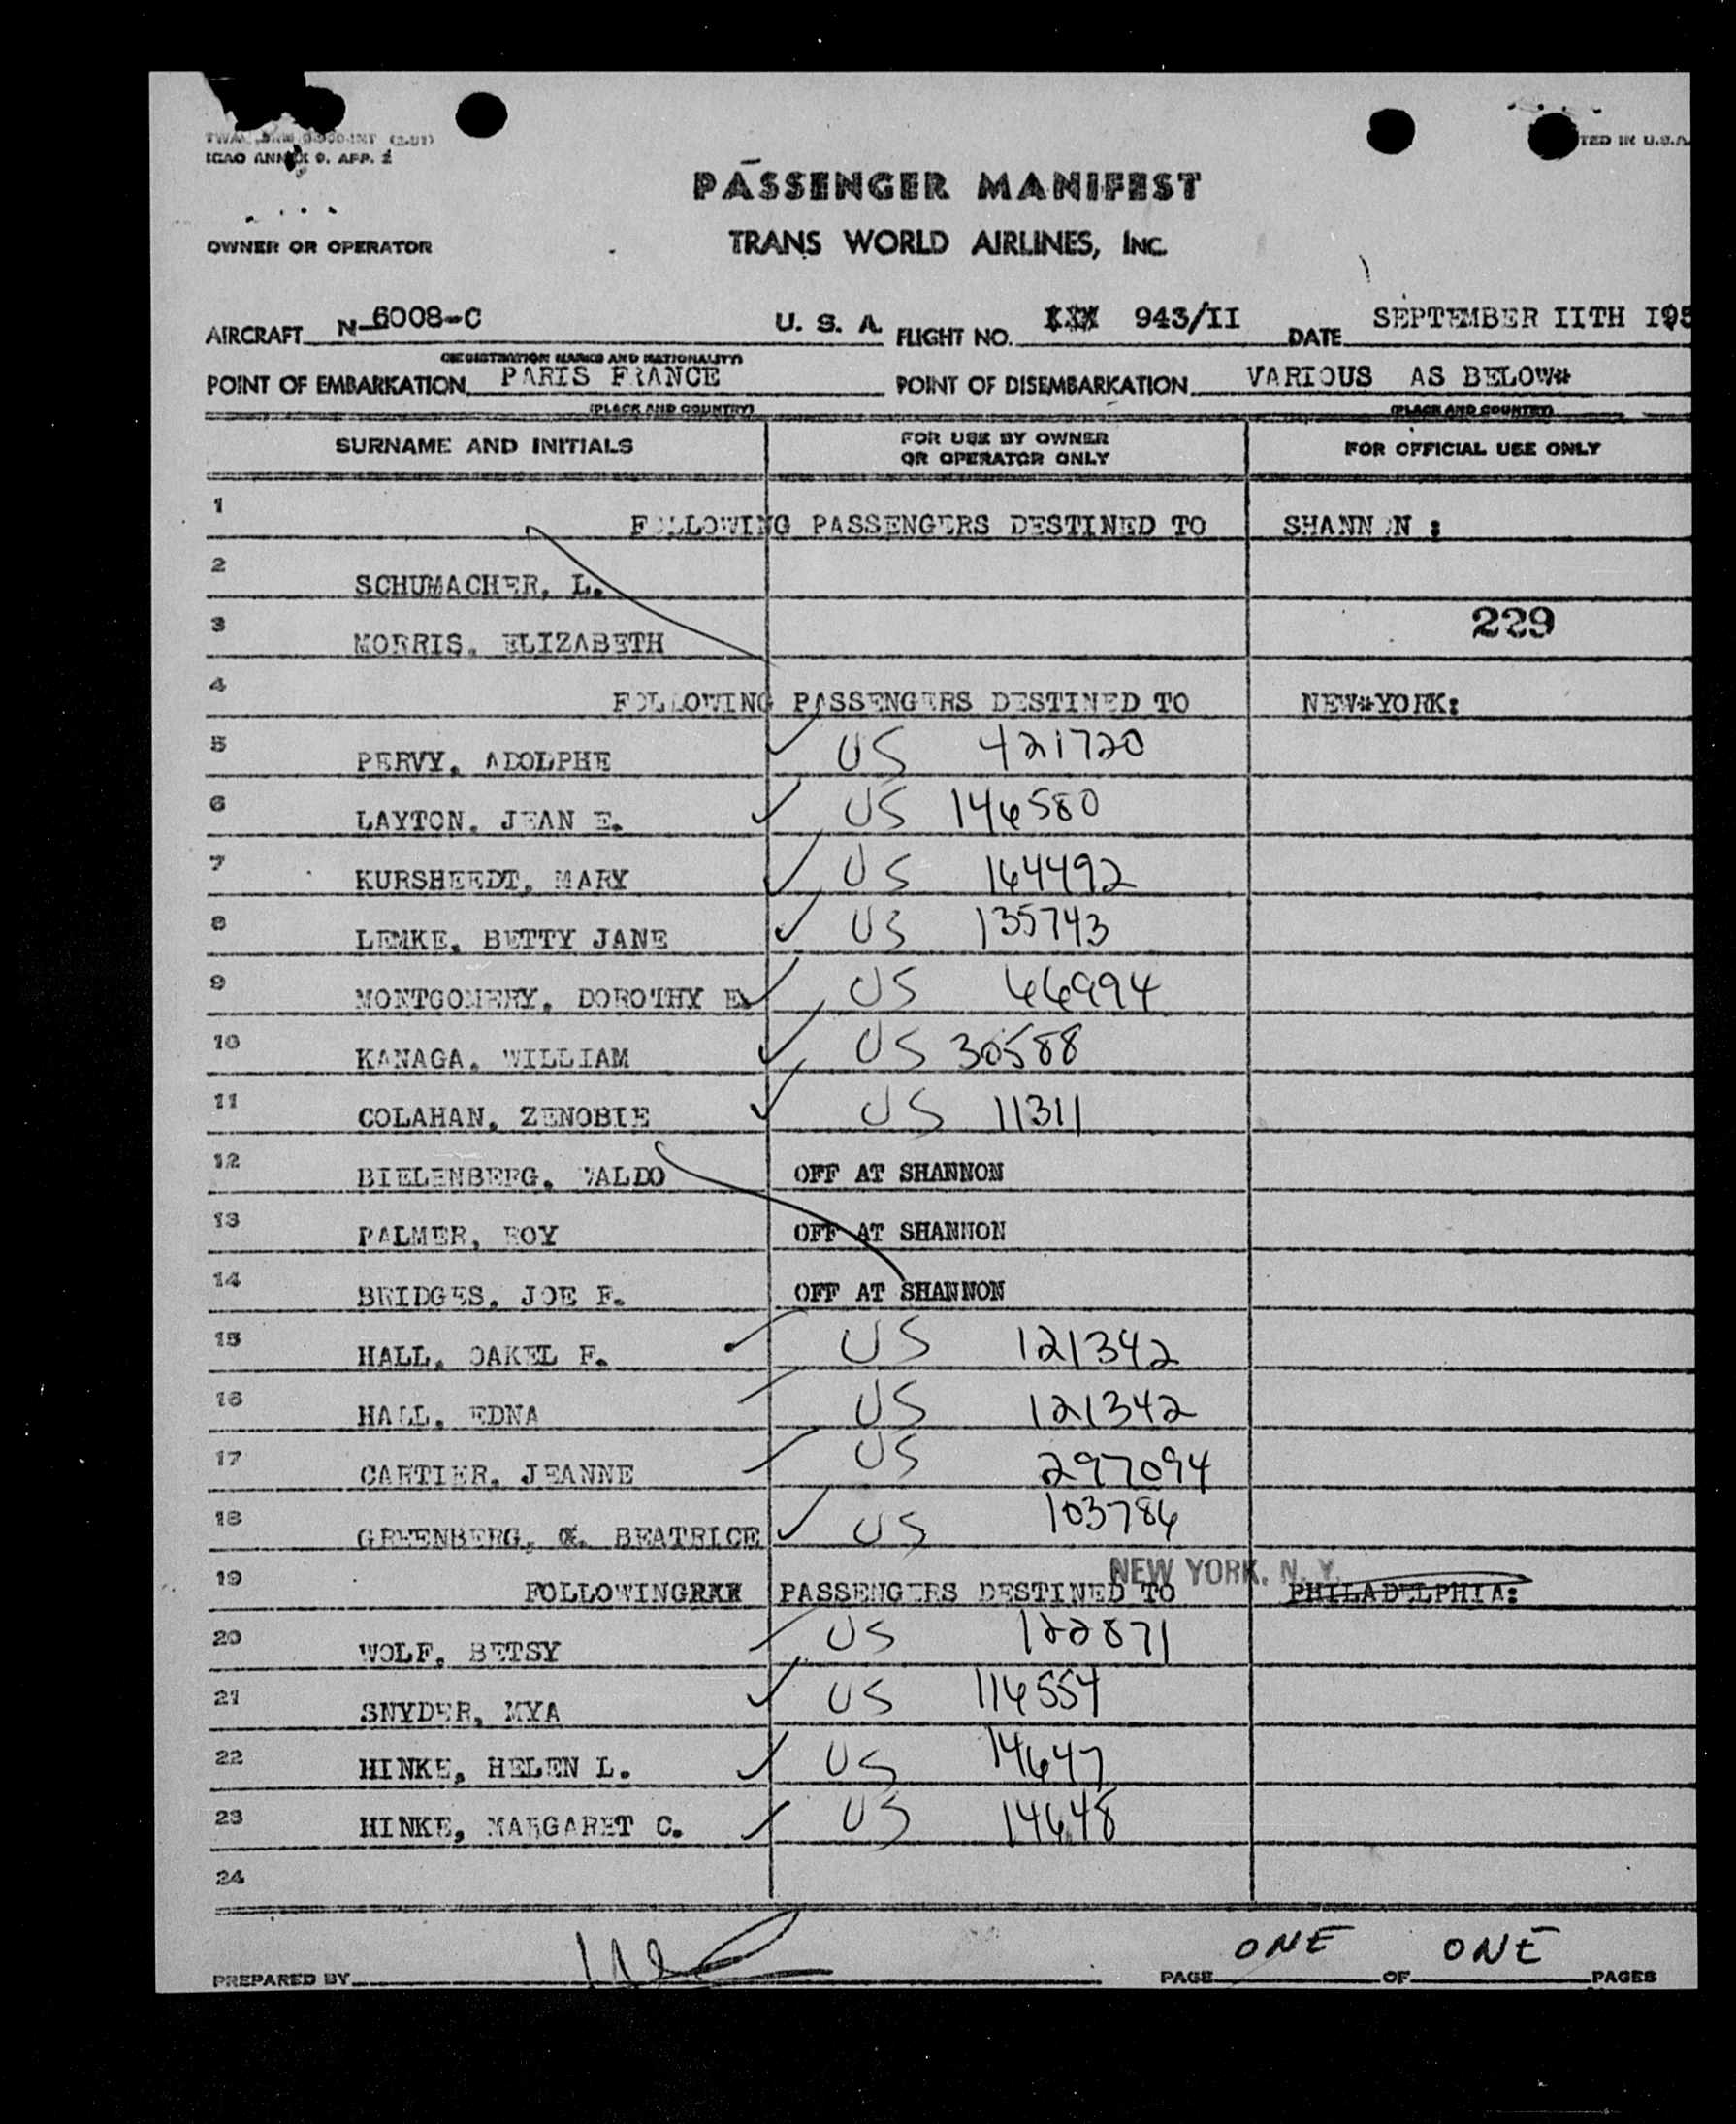 ICAO ANNEX 9. APP. 2
TED IN U.S.A.
PASSENGER MANIFEST
OWNER OR OPERATOR
TRANS WORLD AIRLINES, INC.
AIRCRAFT N-6008-C U. S. A. FLIGHT NO. XXX 943/II DATE SEPTEMBER IITH I95
(REGISTRATION MARKS AND NATIONALITY)
POINT OF EMBARKATION PARIS FRANCE POINT OF DISEMBARKATION VARIOUS AS BELOW#
(PLACE AND COUNTRY) (PLACE AND COUNTRY)
SURNAME AND INITIALS FOR USE BY OWNER OR OPERATOR ONLY FOR OFFICIAL USE ONLY
1 FOLLOWING PASSENGERS DESTINED TO SHANNON :
2 SCHUMACHER, L.
3 MORRIS, ELIZABETH 229
4 FOLLOWING PASSENGERS DESTINED TO NEW#YORK:
5 PERVY, ADOLPHE US 421720
6 LAYTON, JEAN E. US 146580
7 KURSHEEDT, MARY US 164492
8 LEMKE, BETTY JANE US 135743
9 MONTGOMERY, DOROTHY E. US 66994
10 KANAGA, WILLIAM US 30588
11 COLAHAN, ZENOBIE US 11311
12 BIELENBERG, WALDO OFF AT SHANNON
13 PALMER, ROY OFF AT SHANNON
14 BRIDGES, JOE F. OFF AT SHANNON
15 HALL, OAKEL F. US 121342
16 HALL, EDNA US 121342
17 CARTIER, JEANNE US 297094
18 GREENBERG, BEATRICE US 103786
NEW YORK, N. Y.
19 FOLLOWINGRXX PASSENGERS DESTINED TO PHILADELPHIA:
20 WOLF, BETSY US 122871
21 SNYDER, MYA US 116554
22 HINKE, HELEN L. US 14647
23 HINKE, MARGARET C. US 14648
24
PREPARED BY PAGE ONE OF ONE PAGES